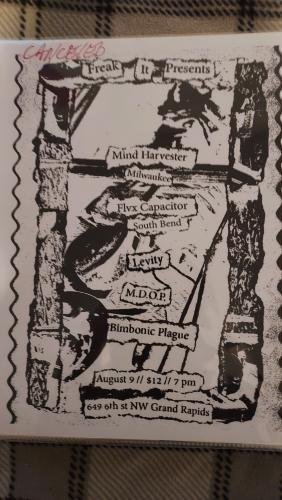 CANCELED
Freak It Presents
Mind Harvester
Milwaukee
Flvx Capacitor
South Bend
Levity
M.D.O.P.
Bimbonic Plague
August 9 // $12 // 7 pm
649 6th st NW Grand Rapids